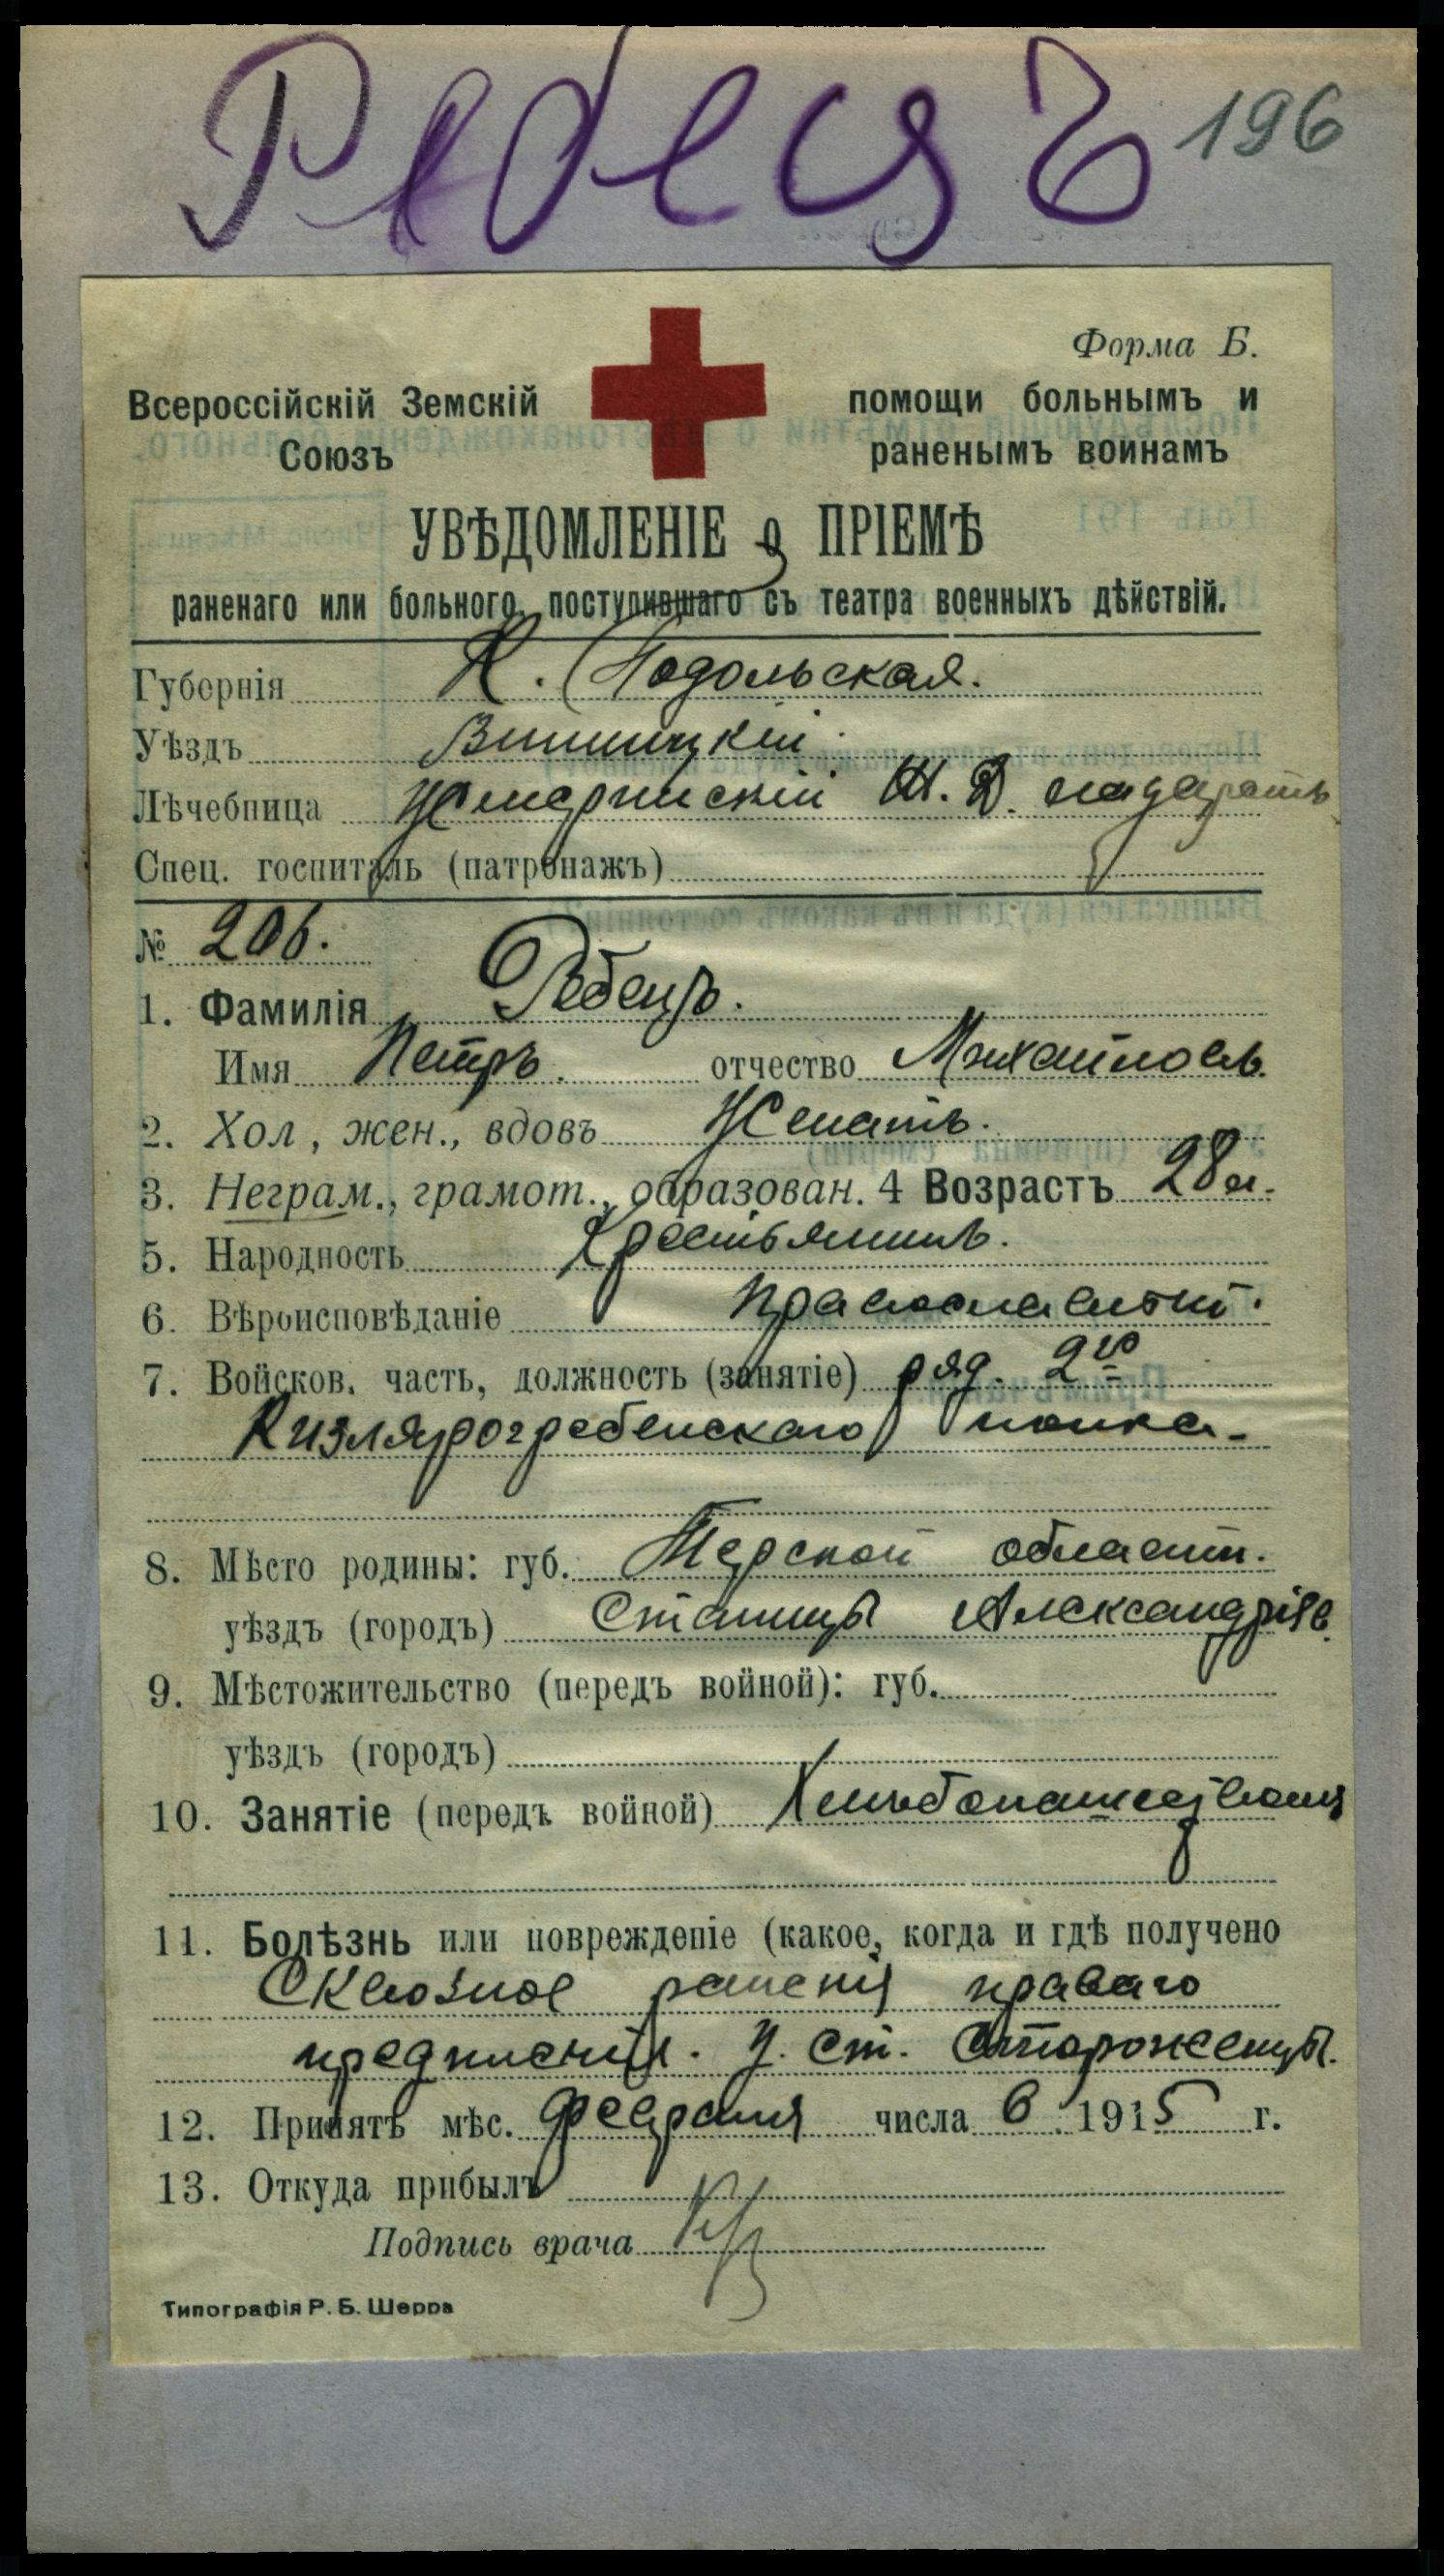 Ребецъ 196
Форма Б.
Всероссійскій Земскій Союзъ
помощи больнымъ и раненымъ воинамъ
УВѢДОМЛЕНІЕ о ПРІЕМѢ
раненаго или больного, поступившаго съ театра военныхъ дѣйствій.
Губернія К. Подольская.
Уѣздъ Винницкій
Лѣчебница Жмеринскій Ж. Д. лазаретъ
Спец. госпиталь (патронажъ)
№ 206.
1. Фамилія Ребецъ.
Имя Петръ. отчество Михайловъ.
2. Хол, жен., вдовъ Женатъ.
3. Неграм., грамот., образован. 4 Возрастъ 28 л.
5. Народность Крестьянинъ.
6. Вѣроисповѣданіе православный.
7. Войсков. часть, должность (занятіе) ряд. 2го
Кизлярогребенскаго полка.
8. Мѣсто родины: губ. Терской области.
уѣздъ (городъ) Станицы Александрів.
9. Мѣстожительство (передъ войной): губ.
уѣздъ (городъ)
10. Занятіе (передъ войной)
11. Болѣзнь или поврежденіе (какое, когда и гдѣ получено
Сквозное раненія праваго
предплечія. У. ст. Стороженцы.
12. Принятъ мѣс. февраля числа 6 1915 г.
13. Откуда прибылъ
Подпись врача
Типографія Р. Б. Шерра